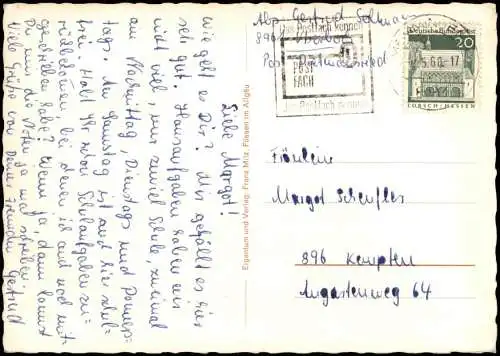 Liebe Margot!
Wie geht es Dir? Mir gefällt es hier
sehr gut. Hausaufgaben haben wir
nicht viel, nur zuviel Schule, zweimal
am Nachmittag, Dienstags und Donners=
tags. Am Samstag ist auch hier schul=
frei. Habt Ihr schon Schulaufgaben zu=
rückbekommen bei denen ich auch noch mit=
geschrieben habe? Wenn ja, dann kannst
Du mir die Noten ja mal schreiben.
Viele Grüße von Deiner Freundin Gertrud
Eigentum und Verlag: Franz Milz, Füssen im Allgäu
Abs. Gertrud
896
Post
Das Postfach kennen
POST
FACH
Postfach
5.68.-17
Deutsche Bundespost
20
LORSCH-HESSEN
Fräulein
Margot Scheufler
896 Kempten
Augartenweg 64